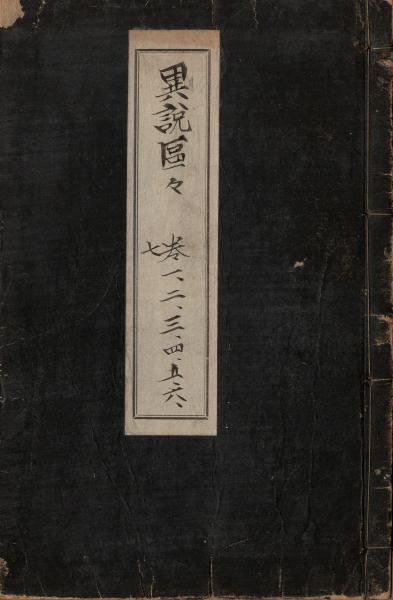 異説區々
巻一、二、三、四、五、六、
七